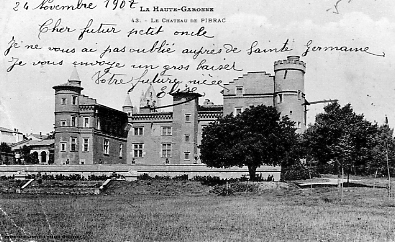 24 novembre 1907
LA HAUTE-GARONNE
43. - LE CHATEAU DE PIBRAC
Cher futur petit oncle
Je ne vous ai pas oublié auprès de Sainte germaine
je vous envoye un gros baiser
Votre future nièce
Elise